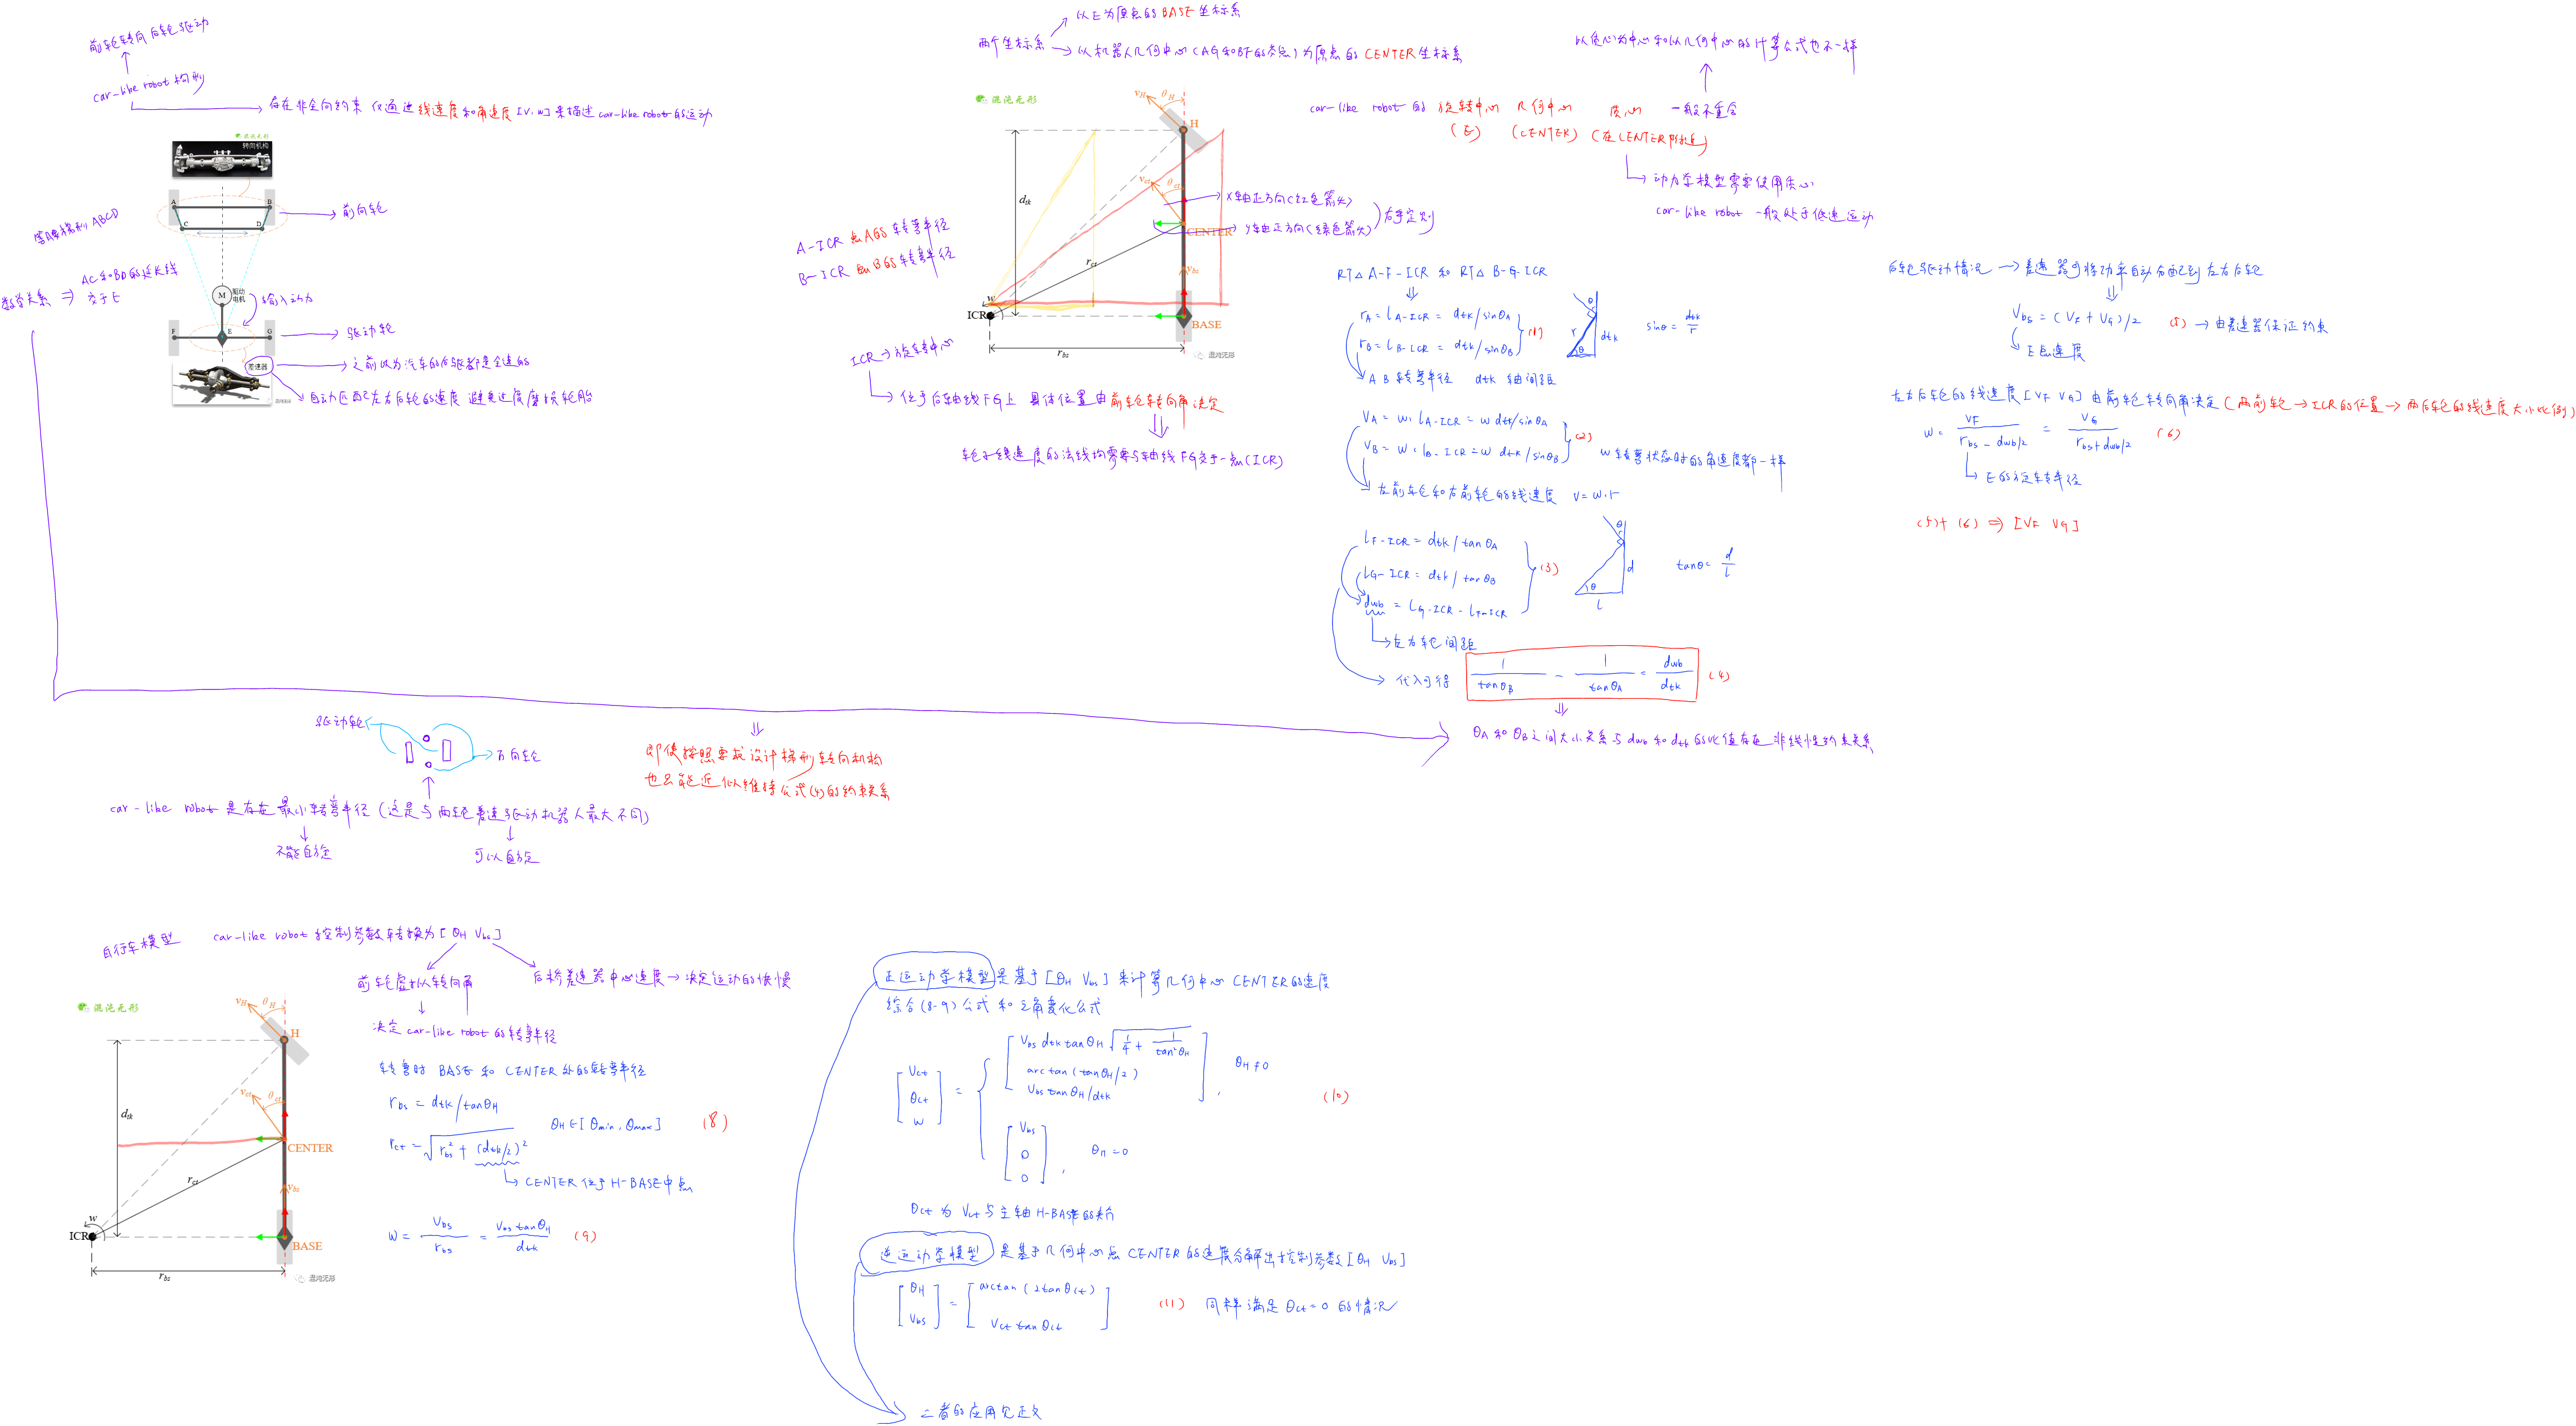 前轮转向 后轮驱动
car-like robot 构形
存在非全向约束 仅通过线速度和角速度 [v, w] 来描述 car-like robot 的运动
混沌无形
转向机构
A
B
C
D
前向轮
等腰梯形 ABCD
AC和BD的延长线
交于E
数学关系 ⇒
M
驱动
电机
输入动力
F
E
G
驱动轮
差速器
之前以为汽车的后驱都是全速的
自动匹配左右后轮的速度 避免过度磨损轮胎
以E为原点的BASE坐标系
两个坐标系
以机器人几何中心(AG和BF的交点)为原点的CENTER坐标系
混沌无形
v_H
θ_H
H
d_tk
v_ct
θ_ct
X轴正方向(红色箭头)
Y轴正方向(绿色箭头)
右手定则
CENTER
r_ct
v_bs
w
ICR
BASE
r_bs
混沌无形
A-ICR 点A的转弯半径
B-ICR 点B的转弯半径
ICR → 旋转中心
位于后轴线FG上 具体位置由前轮转向角决定
轮子线速度的法线均需要与轴线FG交于一点(ICR)
以质心为中心和以几何中心的计算公式也不一样
car-like robot 的 旋转中心 几何中心 质心 一般不重合
(E) (CENTER) (在CENTER附近)
动力学模型需要使用质心
car-like robot 一般处于低速运动
RT△ A-F-ICR 和 RT△ B-G-ICR
r_A = l_A-ICR = dtk/sinθ_A
r_B = l_B-ICR = dtk/sinθ_B
(1)
θ
r
dtk
θ
sinθ = dtk/r
A B 转弯半径 dtk 轴间距
V_A = w·l_A-ICR = w dtk/sinθ_A
V_B = w·l_B-ICR = w dtk/sinθ_B
(2)
w 转弯状态时的角速度都一样
左前轮和右前轮的线速度 v = w·r
l_F-ICR = dtk/tanθ_A
l_G-ICR = dtk/tanθ_B
dwb = l_G-ICR - l_F-ICR
(3)
θ
d
θ
l
tanθ = d/l
左右轮间距
代入可得 1/tanθ_B - 1/tanθ_A = dwb/dtk (4)
θ_A 和 θ_B 之间大小关系与 dwb 和 dtk 的比值存在非线性约束关系
后轮驱动情况 → 差速器可将功率自动分配到左右后轮
V_bs = (V_F + V_G)/2 (5) → 由差速器保证约束
E点速度
左右后轮的线速度 [V_F V_G] 由前轮转向角决定 (两前轮 → ICR的位置 → 两后轮的线速度大小比例)
w = V_F/(r_bs - dwb/2) = V_G/(r_bs + dwb/2) (6)
E的旋转半径
(5)+(6) ⇒ [V_F V_G]
驱动轮
万向轮
即使按照要求设计梯形转向机构
也只能近似维持公式(4)的约束关系
car-like robot 是存在最小转弯半径 (这是与两轮差速驱动机器人最大不同)
不能自旋
可以自旋
自行车模型 car-like robot 控制参数转换为 [θ_H V_bs]
前轮虚拟转向角
后桥差速器中心速度 → 决定运动的快慢
决定 car-like robot 的转弯半径
混沌无形
v_H
θ_H
H
d_tk
v_ct
θ_ct
CENTER
r_ct
v_bs
w
ICR
BASE
r_bs
混沌无形
转弯时 BASE 和 CENTER 处的转弯半径
r_bs = dtk/tanθ_H
r_ct = √(r_bs² + (dtk/2)²)
θ_H ∈ [θmin, θmax] (8)
CENTER 位于 H-BASE 中点
w = V_bs/r_bs = V_bs tanθ_H/dtk (9)
正运动学模型是基于 [θ_H V_bs] 来计算几何中心 CENTER 的速度
综合(8-9)公式和三角变化公式
[V_ct θ_ct w] = { [V_bs dtk tanθ_H √(1/4 + 1/tan²θ_H) arctan(tanθ_H/2) V_bs tanθ_H/dtk], θ_H ≠ 0
[V_bs 0 0], θ_H = 0
(10)
θ_ct 为 V_ct 与主轴 H-BASE 的夹角
逆运动学模型 是基于几何中心点 CENTER 的速度分解出控制参数 [θ_H V_bs]
[θ_H V_bs] = [arctan(2tanθ_ct) V_ct tanθ_ct] (11) 同样满足 θ_ct = 0 的情况
二者的应用见正文